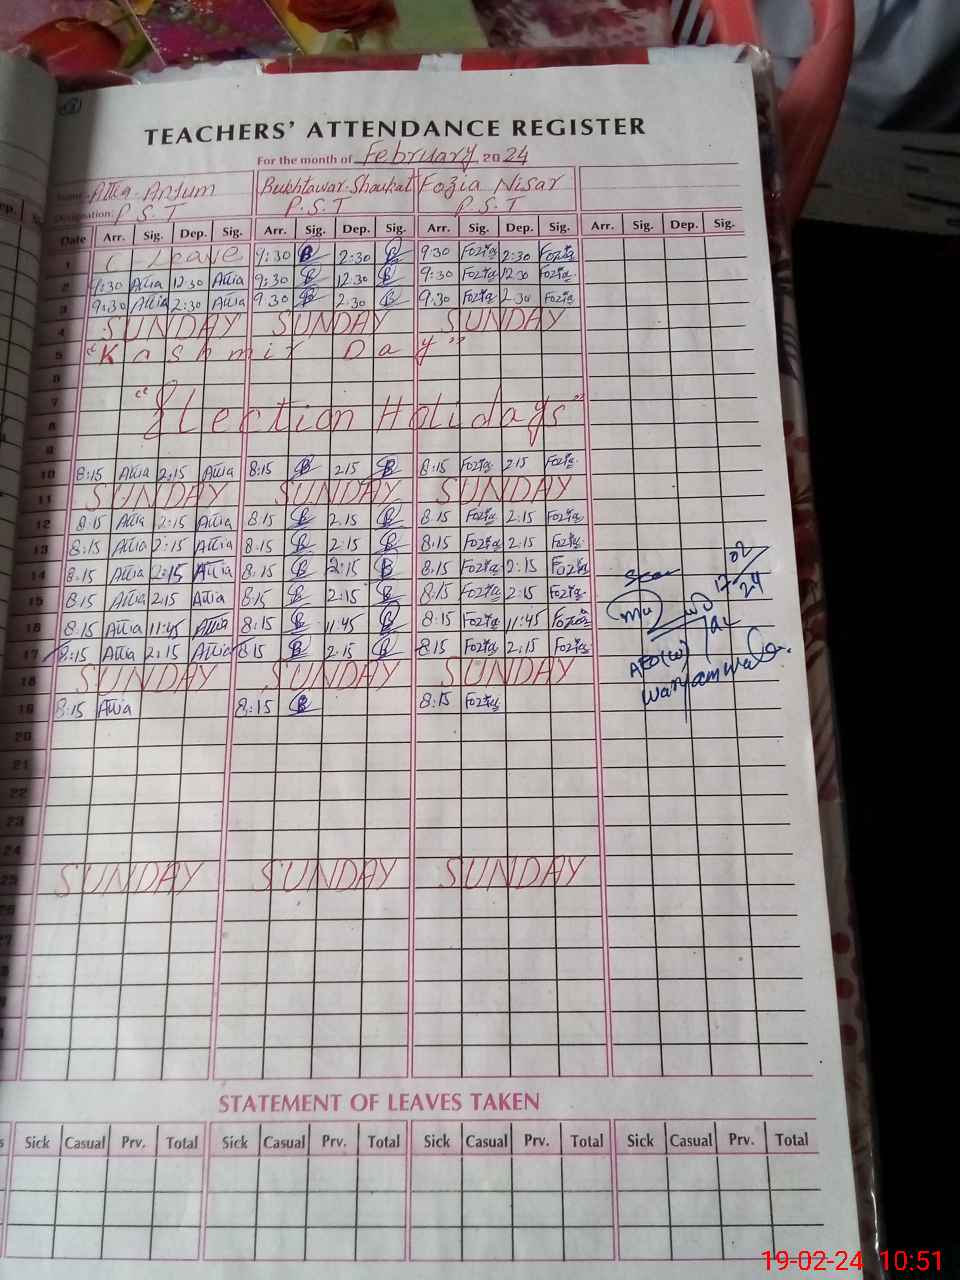 TEACHERS' ATTENDANCE REGISTER
For the month of February 2024
Name: Attia Anjum Bukhtawar Shaukat Fozia Nisar
Designation: P.S.T P.S.T P.S.T
Date Arr. Sig. Dep. Sig. Arr. Sig. Dep. Sig. Arr. Sig. Dep. Sig. Arr. Sig. Dep. Sig.
1 C Leave 9:30 B 2:30 B 9:30 Fozia 2:30 Fozia
2 9:30 Attia 12:30 Attia 9:30 B 12:30 B 9:30 Fozia 12:30 Fozia
3 9:30 Attia 2:30 Attia 9:30 B 2:30 B 9:30 Fozia 2:30 Fozia
4 SUNDAY SUNDAY SUNDAY
5 "Kashmir Day"
6
7
8 "Election Holidays"
9
10 8:15 Attia 2:15 Attia 8:15 B 2:15 B 8:15 Fozia 2:15 Fozia
11 SUNDAY SUNDAY SUNDAY
12 8:15 Attia 2:15 Attia 8:15 B 2:15 B 8:15 Fozia 2:15 Fozia
13 8:15 Attia 2:15 Attia 8:15 B 2:15 B 8:15 Fozia 2:15 Fozia
14 8:15 Attia 2:15 Attia 8:15 B 2:15 B 8:15 Fozia 2:15 Fozia
15 8:15 Attia 2:15 Attia 8:15 B 2:15 B 8:15 Fozia 2:15 Fozia
16 8:15 Attia 11:45 Attia 8:15 B 11:45 B 8:15 Fozia 11:45 Fozia
17 8:15 Attia 2:15 Attia 8:15 B 2:15 B 8:15 Fozia 2:15 Fozia
18 SUNDAY SUNDAY SUNDAY
19 8:15 Attia 8:15 B 8:15 Fozia
20
21
22
23
24
25 SUNDAY SUNDAY SUNDAY
26
27
17/02/24
AEO(W)
STATEMENT OF LEAVES TAKEN
Sick Casual Prv. Total Sick Casual Prv. Total Sick Casual Prv. Total Sick Casual Prv. Total
19-02-24 10:51